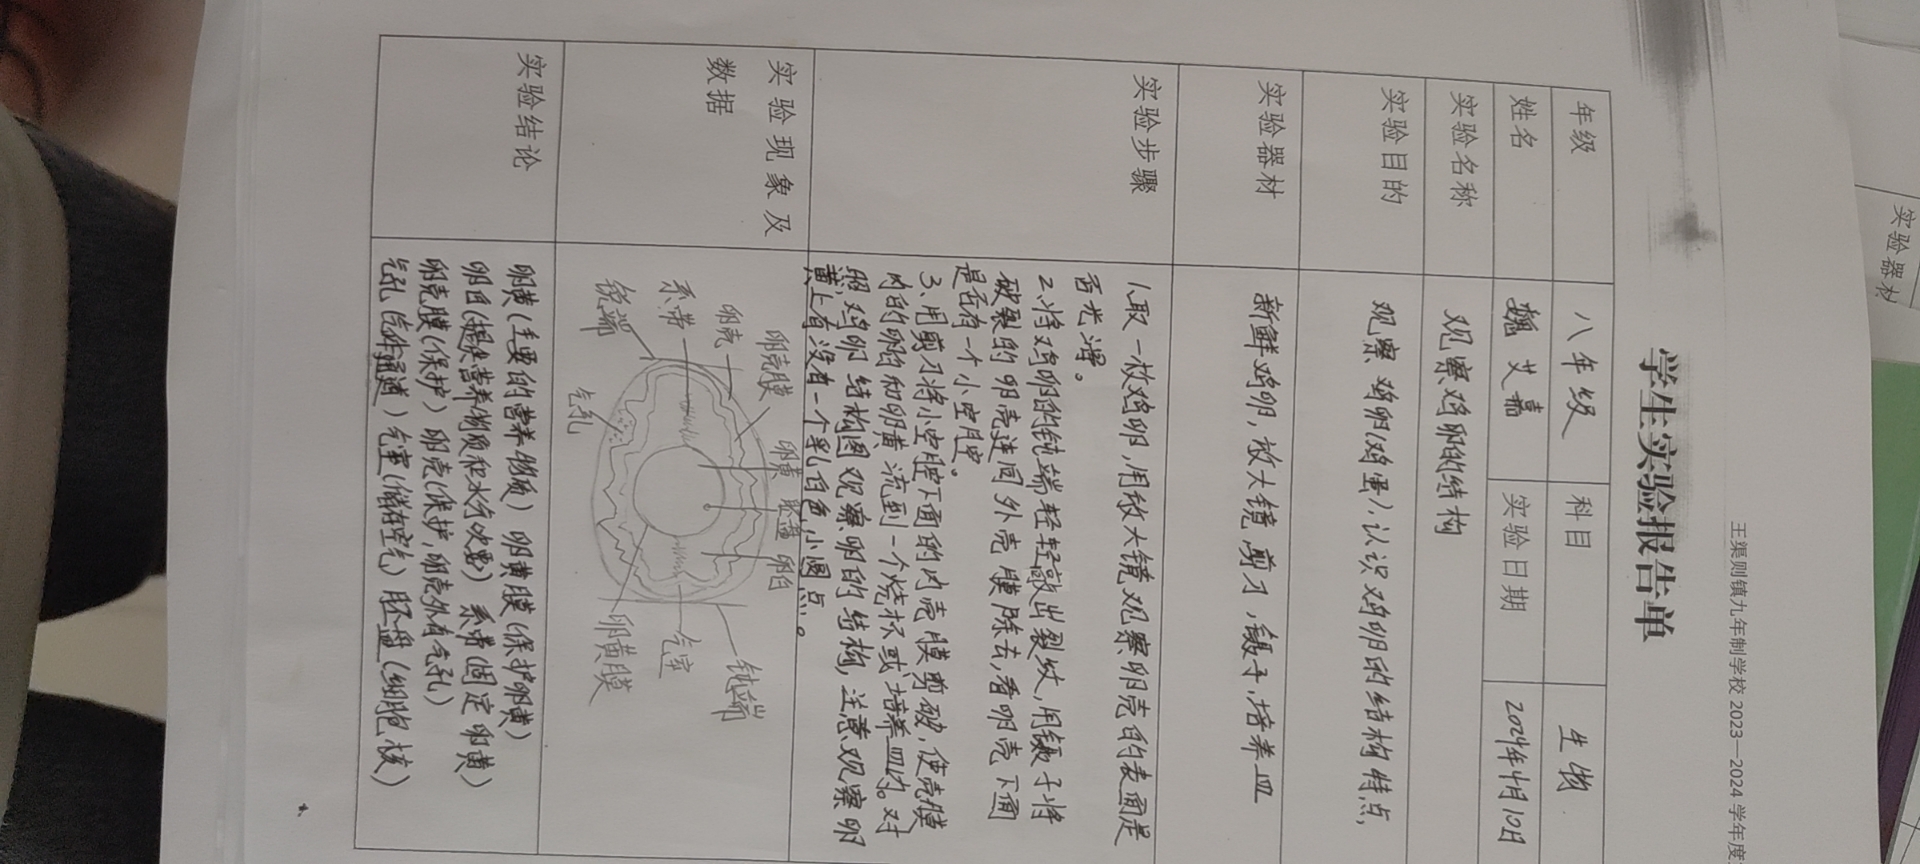 王渠则镇九年制学校 2023—2024 学年度
学生实验报告单
年级 八年级 科目 生物
姓名 魏艾嘉 实验日期 2024年4月10日
实验名称 观察鸡卵的结构
实验目的 观察鸡卵(鸡蛋),认识鸡卵的结构特点,
实验器材 新鲜鸡卵,放大镜,剪刀,镊子,培养皿
实验步骤
1.取一枚鸡卵,用放大镜观察卵壳的表面是
否光滑。
2.将鸡卵的钝端轻轻敲出裂纹,用镊子将
破裂的卵壳连同外壳膜除去,看卵壳下面
是否有一个小空腔。
3.用剪刀将小空腔下面的内壳膜剪破,使壳膜
内的卵白和卵黄流到一个烧杯或培养皿内。对
照鸡卵结构图观察卵白的结构,注意观察卵
黄上有没有一个乳白色小圆点。
实验现象及
数据
卵壳膜 卵黄 胚盘 卵白
卵壳
系带
锐端
气孔
钝端
气室
卵黄膜
实验结论
卵黄(主要的营养物质) 卵黄膜(保护卵黄)
卵白(提供营养物质和水分次要) 系带(固定卵黄)
卵壳膜(保护) 卵壳(保护,卵壳外有气孔)
气孔(气体通道) 气室(储存空气) 胚盘(细胞核)
实验器材